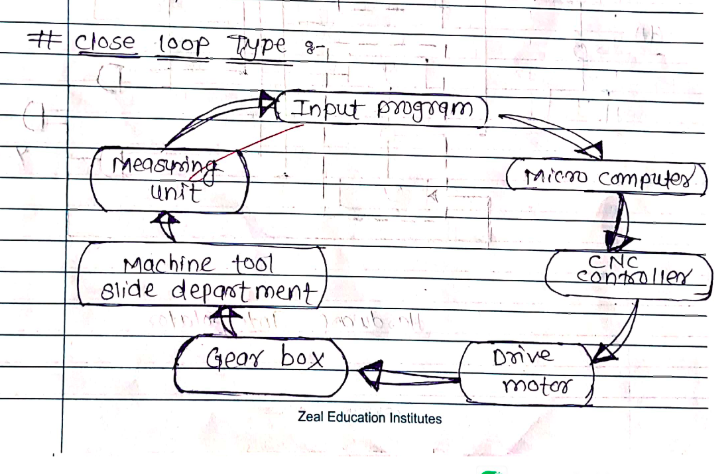 # close loop Type :-
Input program
Micro computer
CNC
controller
Drive
motor
Gear box
Machine tool
slide department
Measuring
unit
Zeal Education Institutes